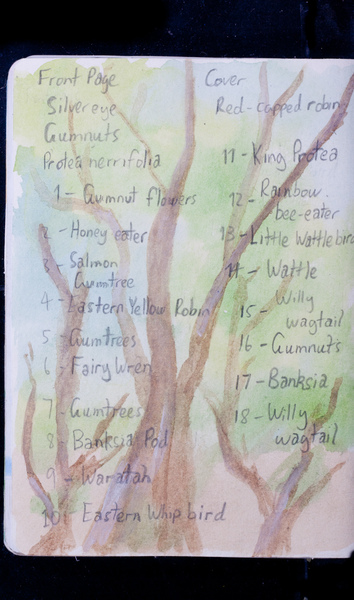 Front Page
Silvereye
Gumnuts
Protea nerrifolia
1 - Gumnut flowers
2 - Honey eater
3 - Salmon
Gumtree
4 - Eastern Yellow Robin
5 - Gumtrees
6 - Fairy Wren
7 - Gumtrees
8 - Banksia Pod
9 - Waratah
10 - Eastern Whip bird
Cover
Red-capped robin
11 - King Protea
12 - Rainbow
bee-eater
13 - Little Wattlebird
14 - Wattle
15 - Willy
wagtail
16 - Gumnuts
17 - Banksia
18 - Willy
wagtail